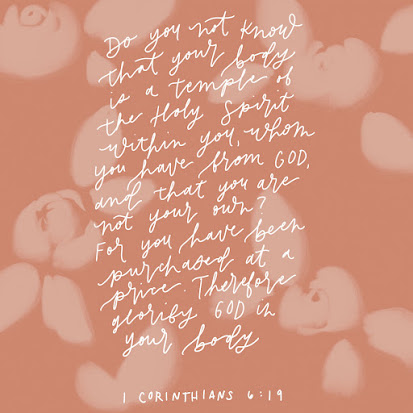 Do you not know
that your body
is a temple of
the Holy Spirit
within you, whom
you have from GOD,
and that you are
not your own?
For you have been
purchased at a
price. Therefore
glorify GOD in
your body
1 CORINTHIANS 6:19